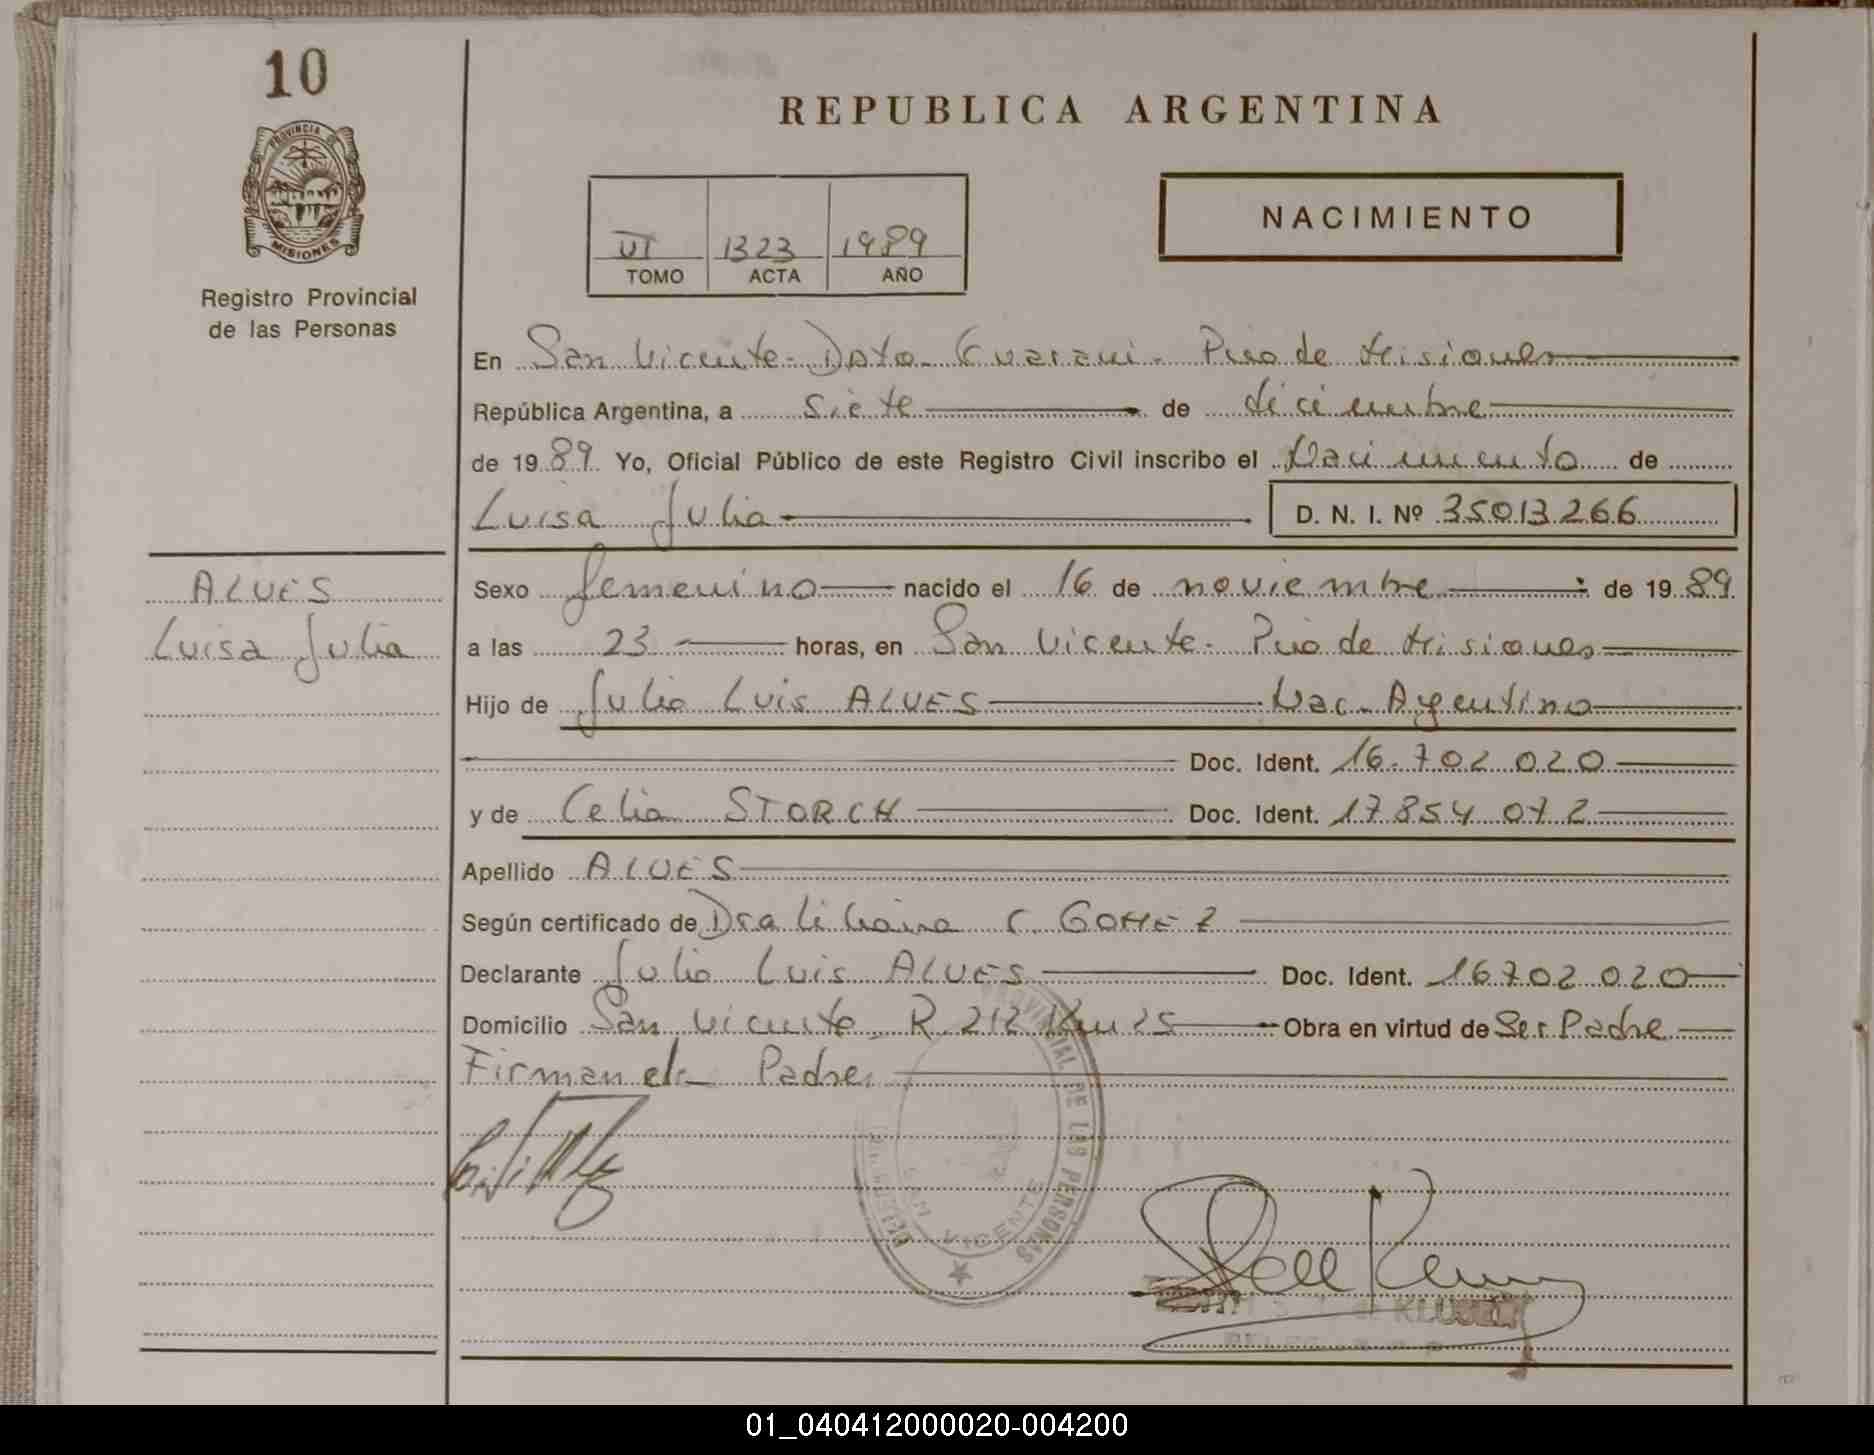 10
REPUBLICA ARGENTINA
PROVINCIA
MISIONES
Registro Provincial
de las Personas
VI 1323 1989
TOMO ACTA AÑO
NACIMIENTO
En San Vicente - Dpto - Guarani - Pcia de Misiones
República Argentina, a siete de diciembre
de 1989 Yo, Oficial Público de este Registro Civil inscribo el Nacimiento de
Luisa Julia D. N. I. Nº 35013266
ALVES
Luisa Julia
Sexo femenino nacido el 16 de noviembre de 1989
a las 23 horas, en San Vicente - Pcia de Misiones
Hijo de Julio Luis ALVES Nac. Argentino
Doc. Ident. 16.702.020
y de Celia STORCH Doc. Ident. 17854072
Apellido ALVES
Según certificado de Dra Liliana C. GOMEZ
Declarante Julio Luis ALVES Doc. Ident. 16702020
Domicilio San Vicente R. 212 Km 25 Obra en virtud de Ser Padre
Firman el Padre
PROVINCIAL DE LAS PERSONAS
SAN VICENTE
KLUSEN
01_040412000020-004200